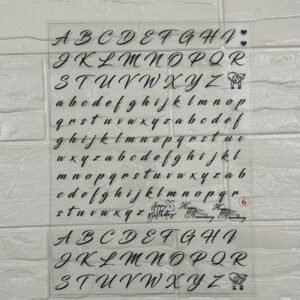 A B C D E F G H I
J K L M N O P Q R
S T U V W X Y Z
a b c d e f g h i j k l m n o p
q r s t u v w x y z a b c d e f
g h i j k l m n o p q r s t u v
w x y z a b c d e f g h i j k l
m n o p q r s t u v w x y z a b
c d e f g h i j k l m n o p q r
s t u v w x y z Happy Birthday 6
A B C D E F G H I
J K L M N O P Q R
S T U V W X Y Z